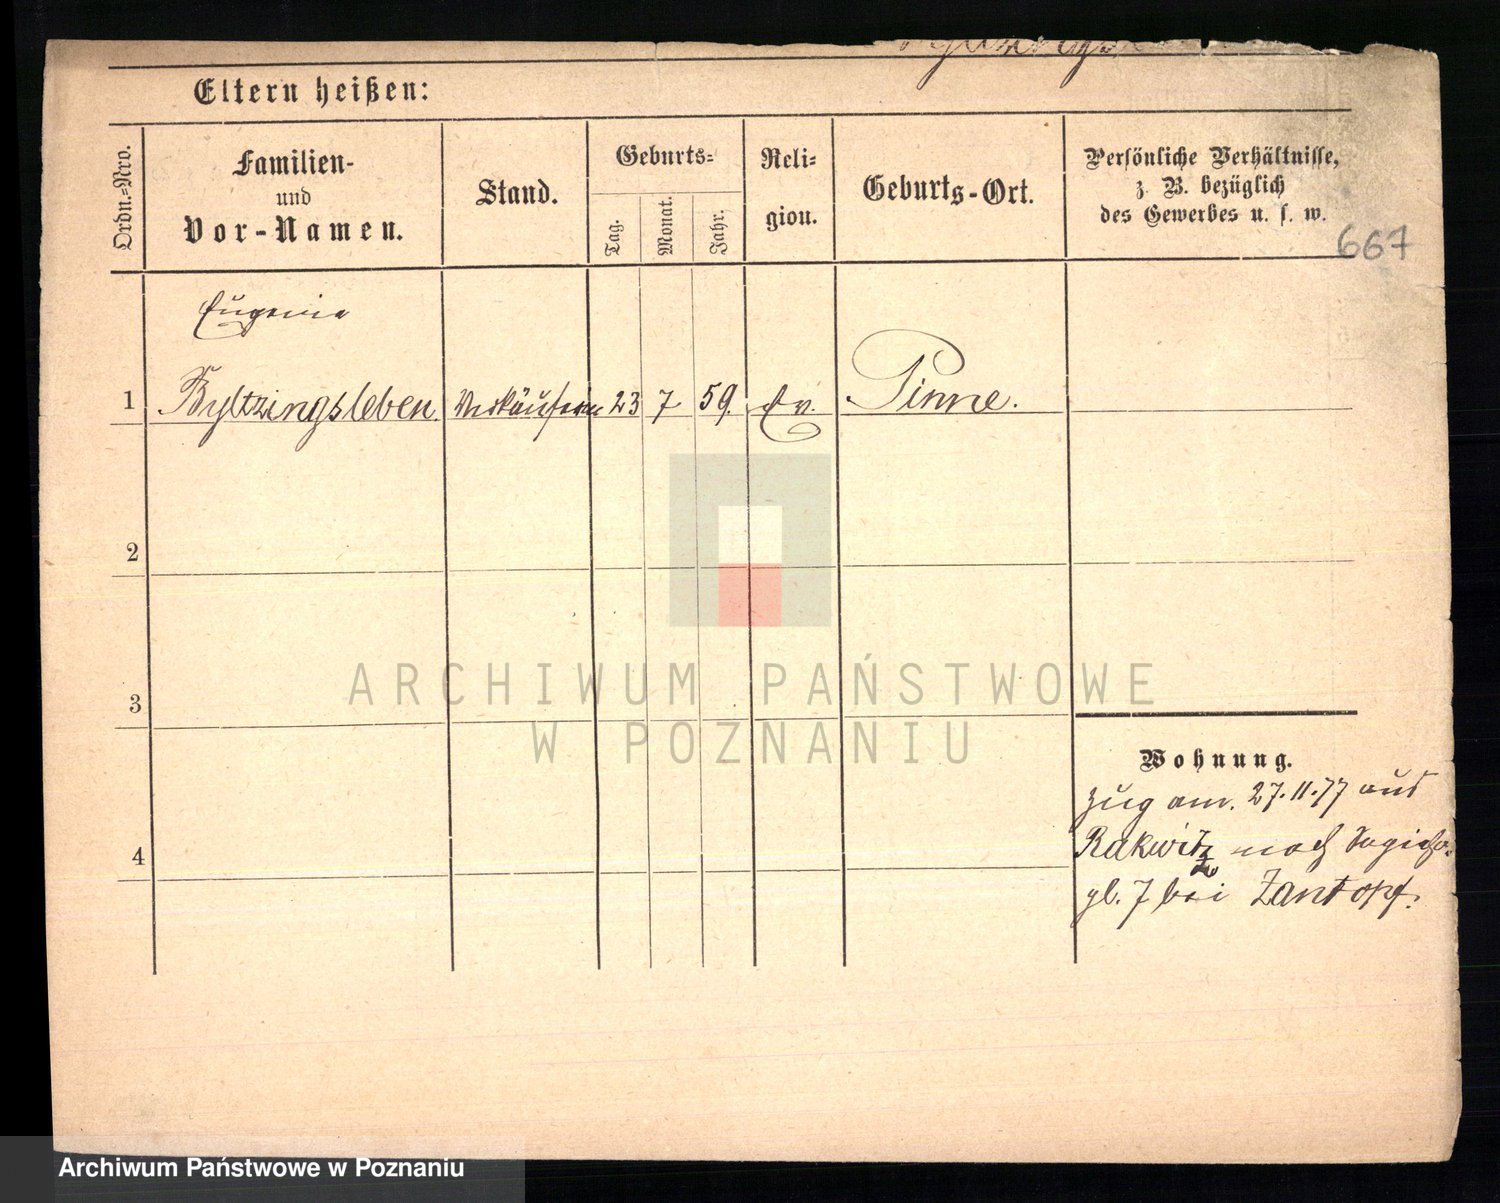 Eltern heißen:
Ordn.-Nro.
Familien-
und
Vor-Namen.
Stand.
Geburts-
Tag.
Monat.
Jahr.
Reli-
gion.
Geburts-Ort.
Persönliche Verhältnisse,
z. B. bezüglich
des Gewerbes u. s. w.
667
Eugenie
1 Byltzingsleben Verkäuferin 23 7 59. Ev. Pinne.
2
3
4
Wohnung.
Zug am. 27.11.77 aus
Rakwitz nach
7 bei Zantopf.
ARCHIWUM PAŃSTWOWE
W POZNANIU
Archiwum Państwowe w Poznaniu